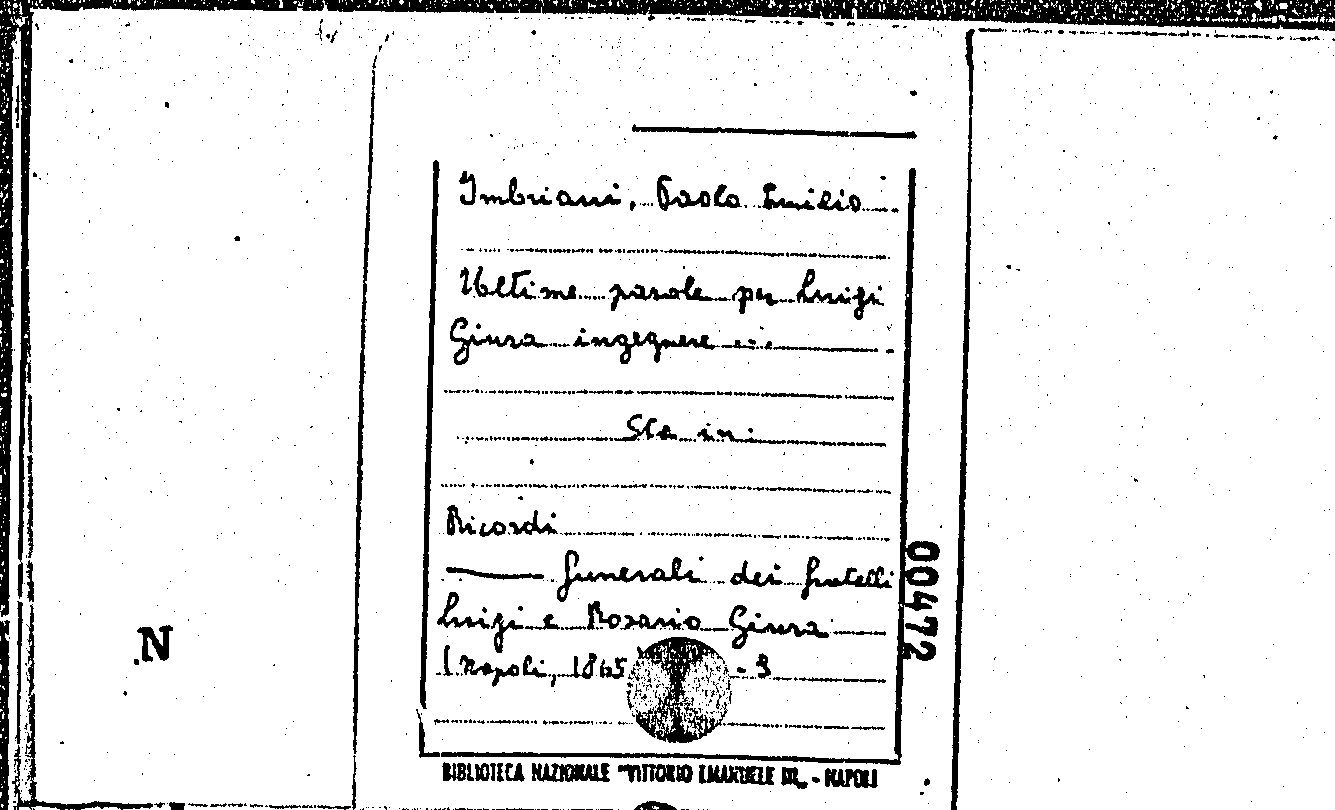 Imbriani, Paolo Emilio
Ultime parole per Luigi
Giura ingegnere ...
Sta in:
Ricordi
—— funerali dei fratelli
Luigi e Rosario Giura
(Napoli, 1865 - 3
N
00472
BIBLIOTECA NAZIONALE "VITTORIO EMANUELE III" - NAPOLI